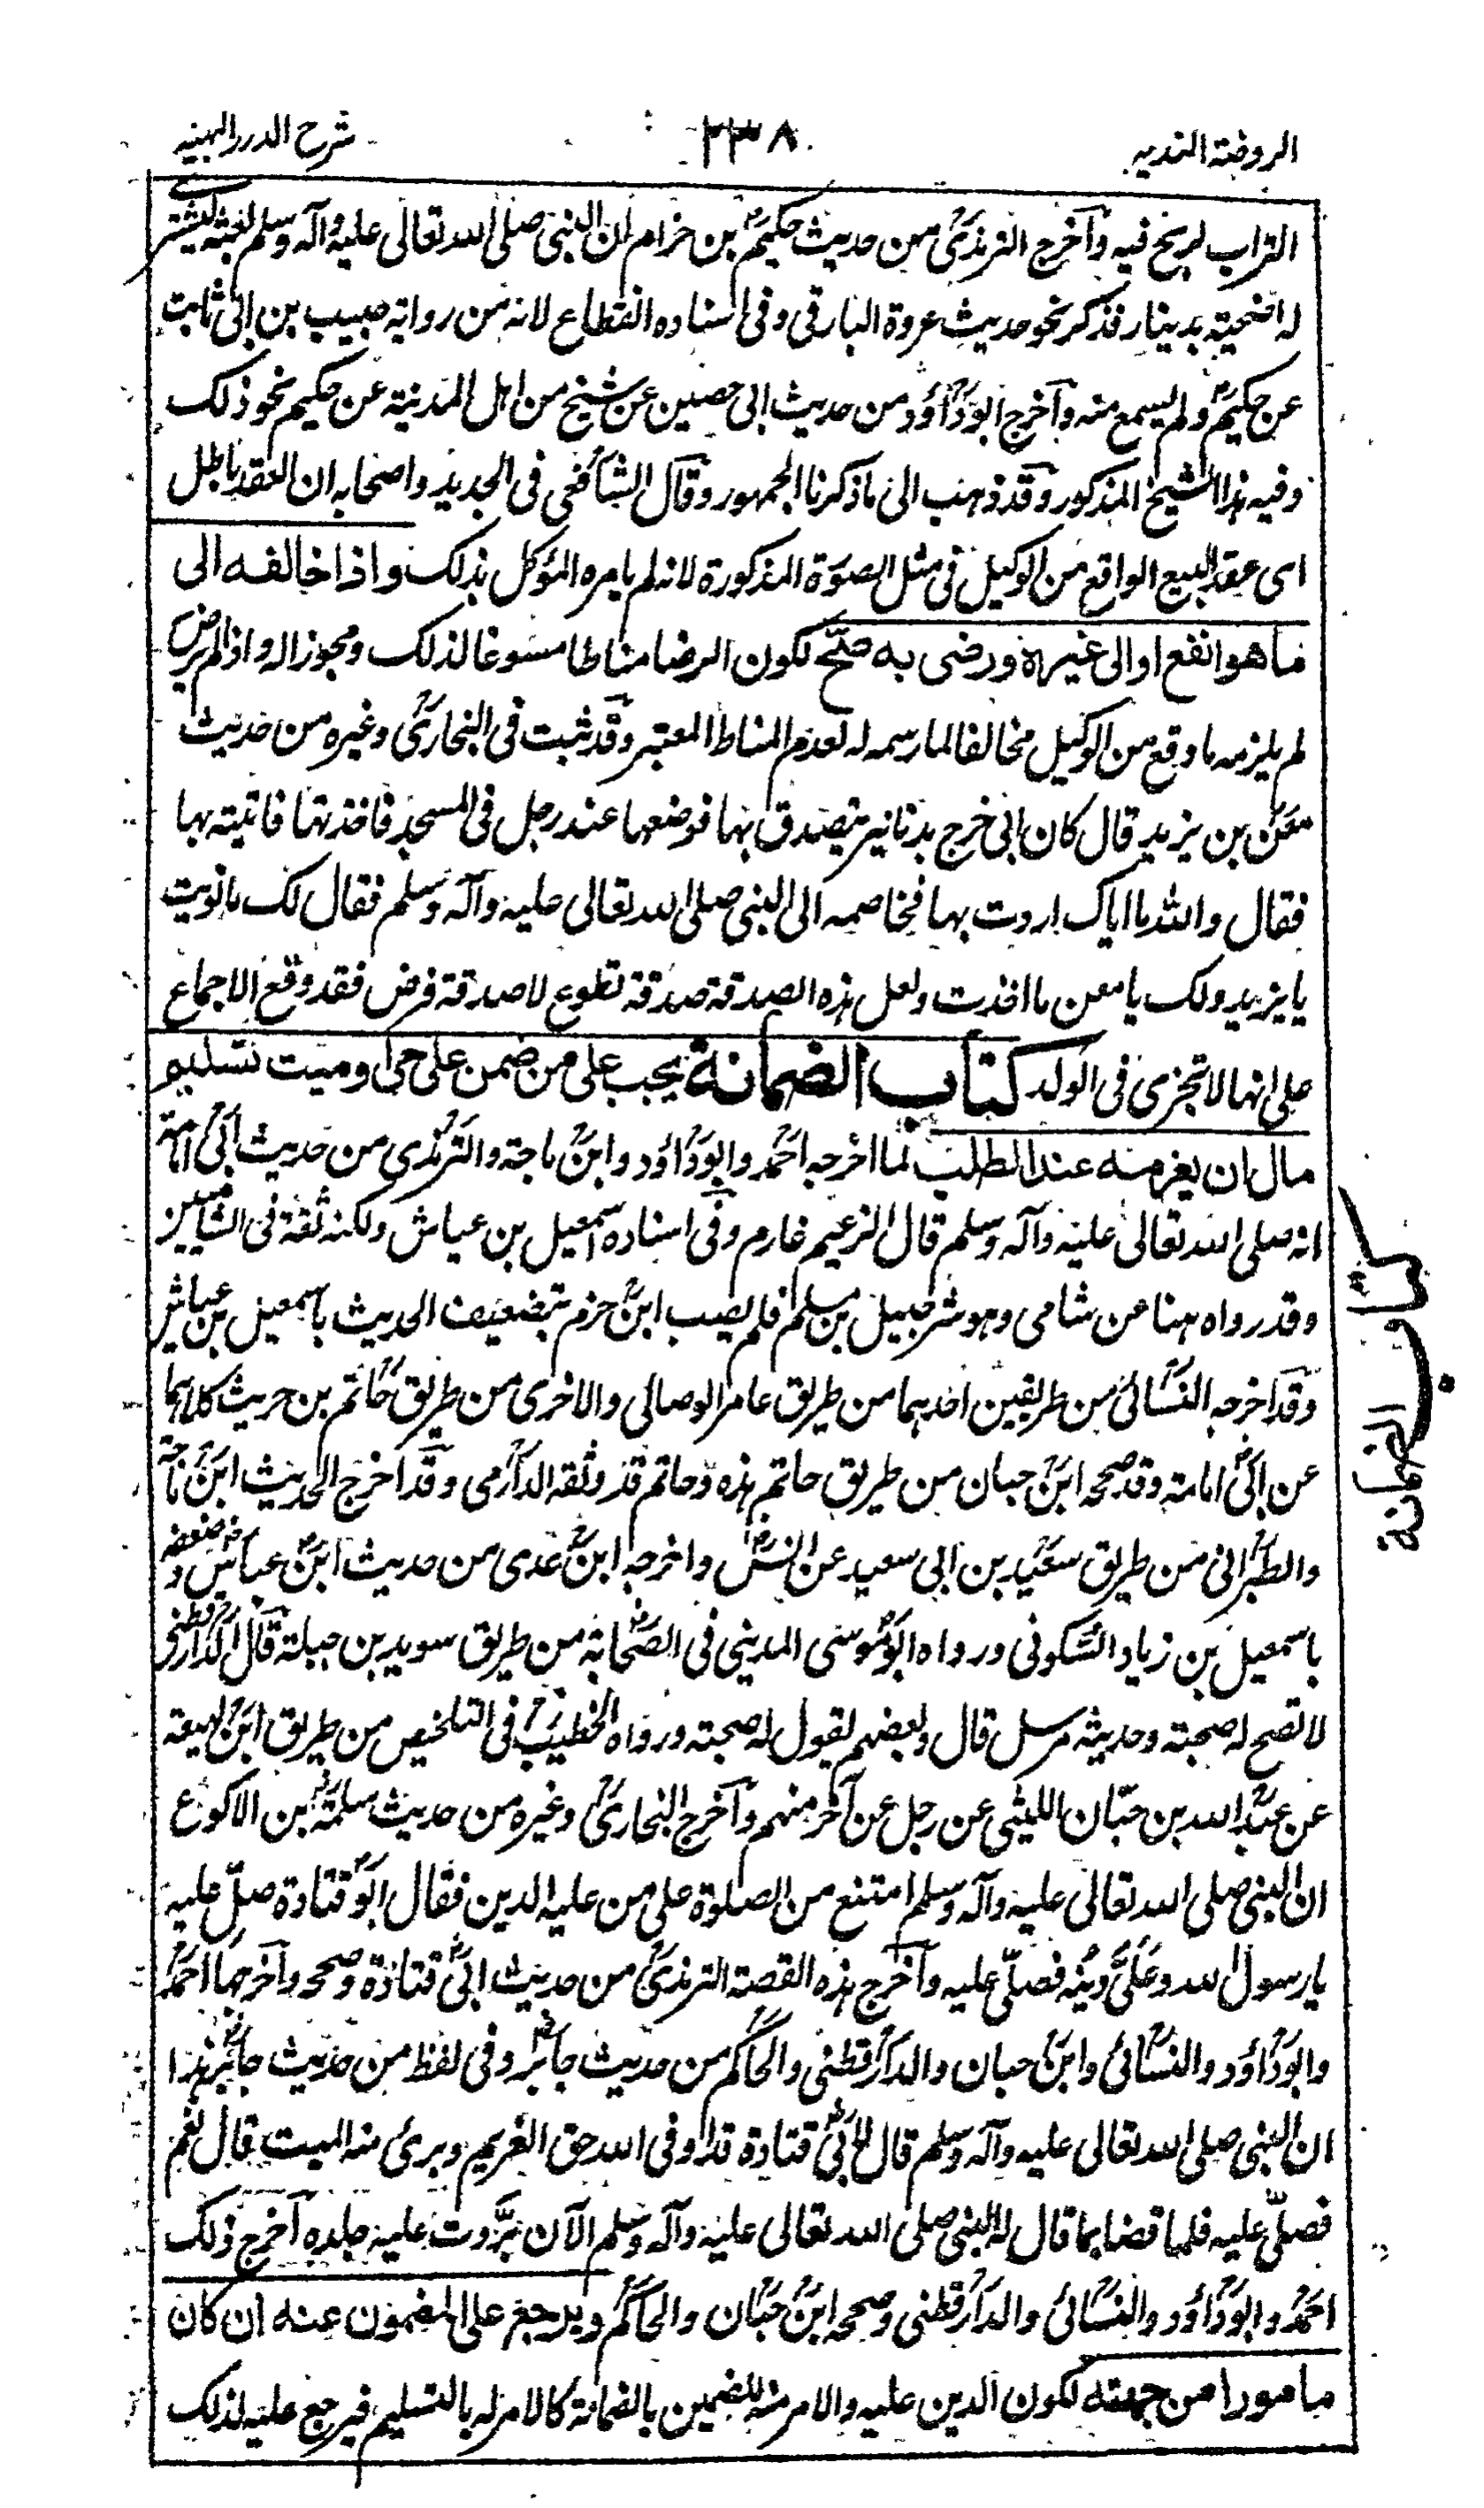 الروضة الندیه
٢٣٨
شرح الدرر البهیه
التراب لربح فیه وأخرج الترمذی من حدیث حکیم بن حزام ان النبی صلی الله تعالی علیه وآله وسلم بعثه لیشتری
له اضحیة بدینار فذکر نحو حدیث عروة البارقی وفی اسناده انقطاع لانه من روایة حبیب بن ابی ثابت
عن حکیم ولم یسمع منه وأخرج ابوداؤد من حدیث ابی حصین عن شیخ من اهل المدینة عن حکیم نحو ذلک
وفیه هذا الشیخ المذکور وقد ذهب الی ما ذکرنا الجمهور وقال الشافعی فی الجدید واصحابه ان العقد باطل
ای عقد البیع الواقع من الوکیل فی مثل الصورة المذکورة لانه لم یامره المؤکل بذلک واذا خالفه الی
ما هو انفع او الی غیره ورضی به صح لکون الرضا مناطا مسوغا لذلک ومجوزا له واذا لم یرض
لم یلزمه ما وقع من الوکیل مخالفا لما رسمه له لعدم المناط المعتبر وقد ثبت فی البخاری وغیره من حدیث
معن بن یزید قال کان ابی خرج بدنانیر یتصدق بها فوضعها عند رجل فی المسجد فاخذتها فاتیته بها
فقال والله ما ایاک اردت بها فخاصمه الی النبی صلی الله تعالی علیه وآله وسلم فقال لک ما نویت
یا یزید ولک یا معن ما اخذت ولعل هذه الصدقة صدقة تطوع لا صدقة فرض فقد وقع الاجماع
علی انها لا تجزی فی الولد کتاب الضمانة یجب علی من ضمن علی حی او میت تسلیم
مال ان یغرمه عند الطلب لما اخرجه احمد وابوداؤد وابن ماجة والترمذی من حدیث ابی امامة
انه صلی الله تعالی علیه وآله وسلم قال الزعیم غارم وفی اسناده اسمعیل بن عیاش ولکنه ثقة فی الشامیین
وقد رواه هنا عن شامی وهو شرحبیل بن مسلم فلم یصب ابن حزم بتضعیف الحدیث باسمعیل بن عیاش
وقد اخرجه النسائی من طریقین احدهما من طریق عامر الوصالی والاخری من طریق حاتم بن حریث کلاهما
عن ابی امامة وقد صححه ابن حبان من طریق حاتم هذه وحاتم قد وثقه الدارمی وقد أخرج الحدیث ابن ماجة
والطبرانی من طریق سعید بن ابی سعید عن انس واخرجه ابن عدی من حدیث ابن عباس وضعفه
باسمعیل بن زیاد السکونی ورواه ابو موسی المدینی فی الصحابة من طریق سوید بن جبلة قال الدارقطنی
لا تصح له صحبته وحدیثه مرسل قال وبعضهم یقول له صحبته ورواه الخطیب فی التلخیص من طریق ابن لهیعة
عن عبد الله بن حبان اللیثی عن رجل عن آخر منهم وأخرج البخاری وغیره من حدیث سلمة بن الاکوع
ان النبی صلی الله تعالی علیه وآله وسلم امتنع من الصلوة علی من علیه الدین فقال ابو قتادة صل علیه
یا رسول الله وعلی دینه فصلی علیه وأخرج هذه القصة الترمذی من حدیث ابی قتادة وصححه وأخرجها احمد
وابوداؤد والنسائی وابن حبان والدارقطنی والحاکم من حدیث جابر وفی لفظ من حدیث جابر هذا
ان النبی صلی الله تعالی علیه وآله وسلم قال لابی قتادة قد اوفی الله حق الغریم وبرئ منه المیت قال نعم
فصلی علیه فلما قضاها قال له النبی صلی الله تعالی علیه وآله وسلم الآن برّدت علیه جلده أخرج ذلک
احمد وابوداؤد والنسائی والدارقطنی وصححه ابن حبان والحاکم ویرجع علی المضمون عنه ان کان
مامورا من جهته لکون الدین علیه والامر منه للضمین بالضمانة کالامر له بالتسلیم فیرجع علیه لذلک
کتاب الضمانة